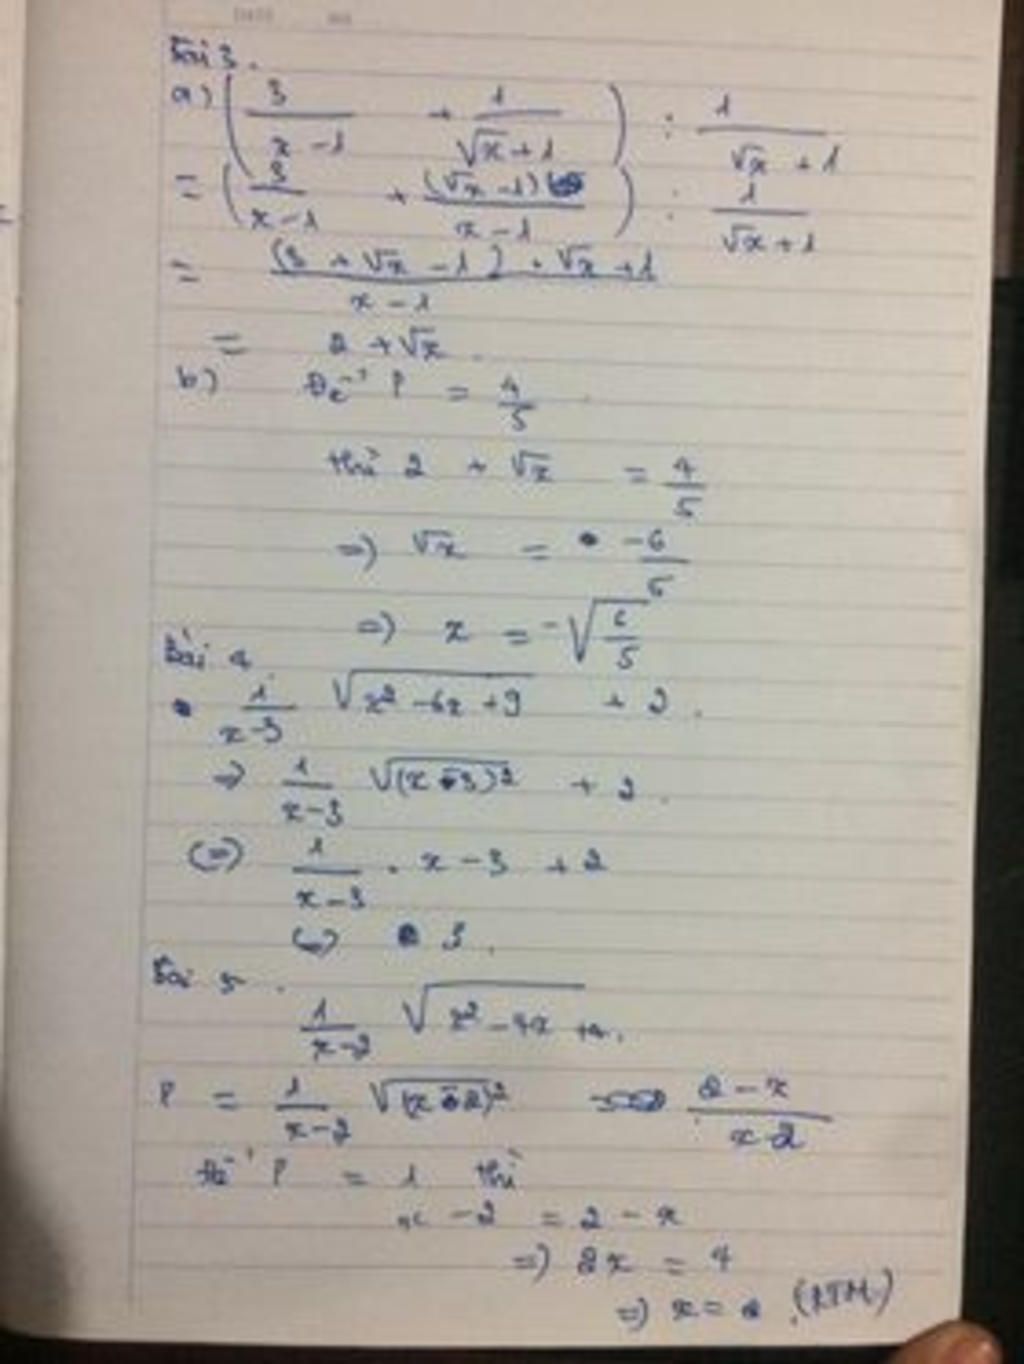 Bài 3.
a) ( 3/(x-1) + 1/(√x+1) ) : 1/(√x+1)
= ( 3/(x-1) + (√x-1)/(x-1) ) : 1/(√x+1)
= (3+√x-1).√x+1/(x-1)
= 2+√x.
b) Để P = 4/5
thì 2 + √x = 4/5
=> √x = -6/5
=> x = -√(6/5)
Bài 4
1/(x-3) √(x²-6x+9) + 2.
=> 1/(x-3) √((x-3)²) + 2.
<=> 1/(x-3) . x-3 + 2
<=> 3.
Bài 5.
1/(x-2) √(x²-4x+4).
P = 1/(x-2) √((x-2)²) (2-x)/(x-2)
Để P = 1 thì
x-2 = 2-x
=> 2x = 4
=> x = 2 (KTM)